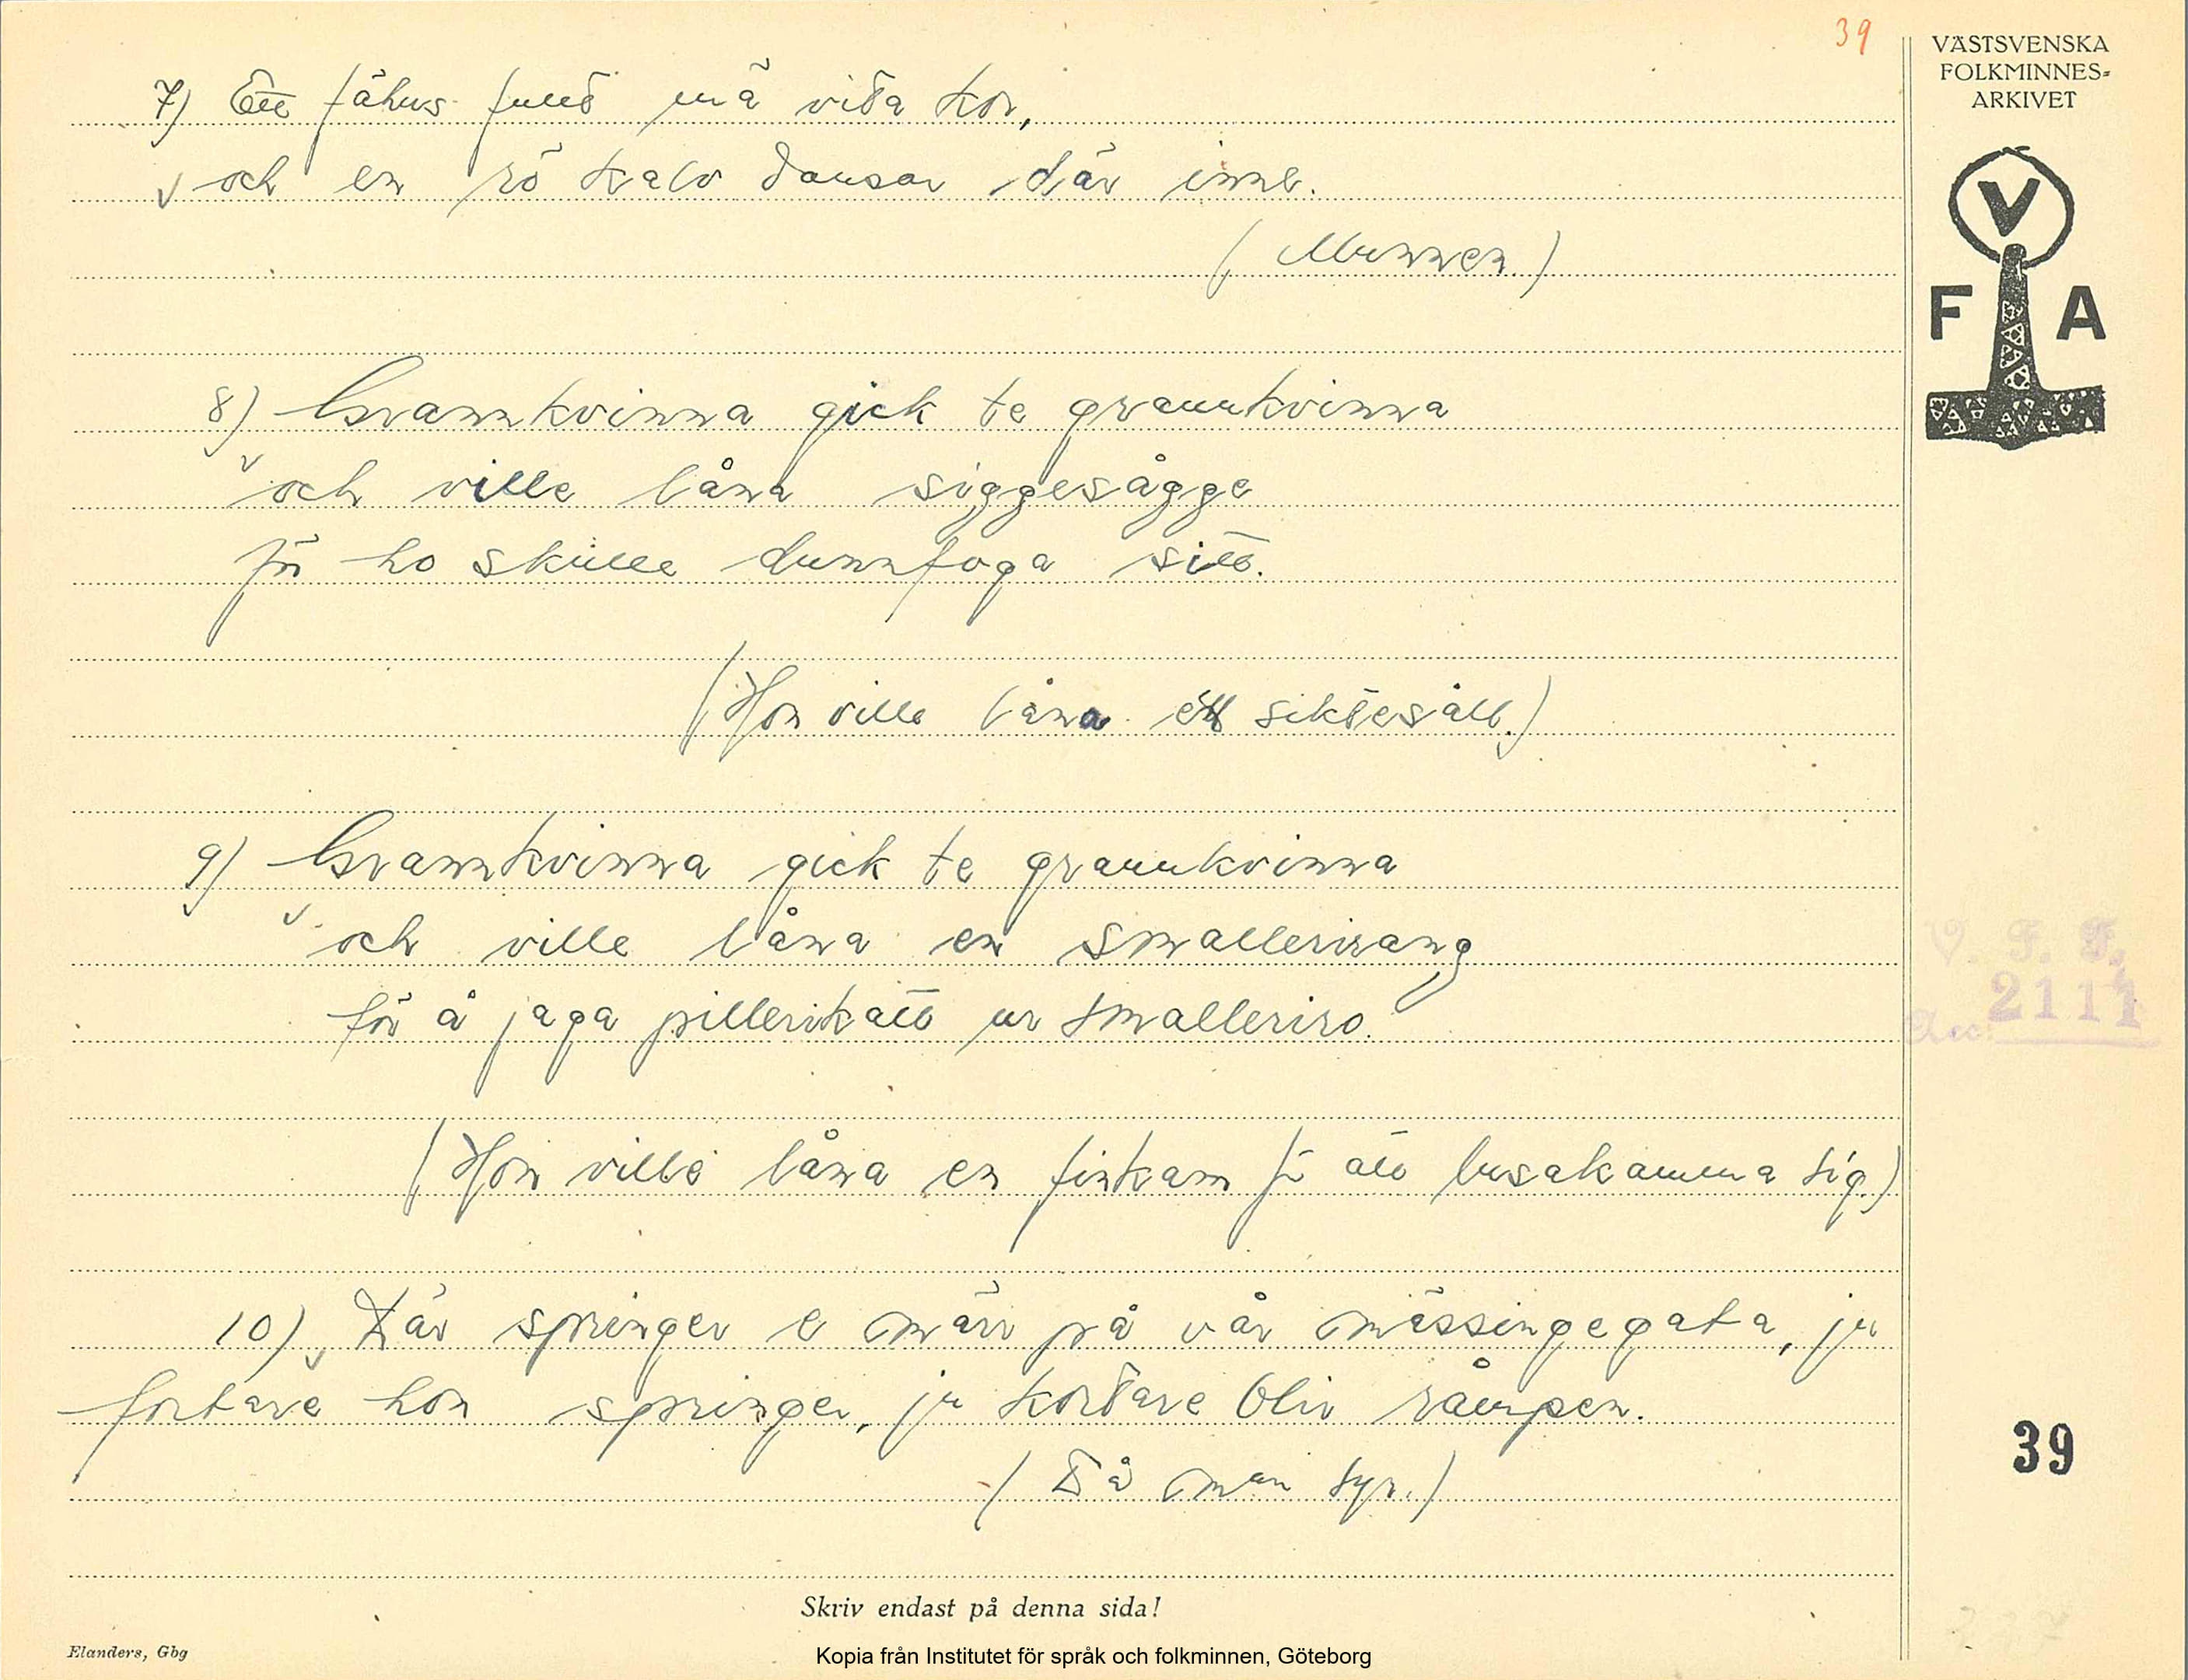 39
VÄSTSVENSKA
FOLKMINNES-
ARKIVET
V
F A
7) Ett fähus fullt mä vita kor,
och en rö kalv dansar där inne.
(Munnen.)
8) Grannkvinna gick te grannkvinna
och ville låna siggesågge
för ho skulle dunnfoga sitt.
(Hon ville låna ett siktesåll.)
9) Grannkvinna gick te grannkvinna
och ville låna en smallerirang
för å jaga pillerikatt ur smalleriro.
(Hon ville låna en finkam för att lusakamma sig.)
10) Där springer e märr på vår mässingegata, ju
fortare hon springer, ju kortare bliv råmpen.
(Då man syr.)
V. F. F.
Acc. 2111
39
Skriv endast på denna sida!
Elanders, Gbg
Kopia från Institutet för språk och folkminnen, Göteborg